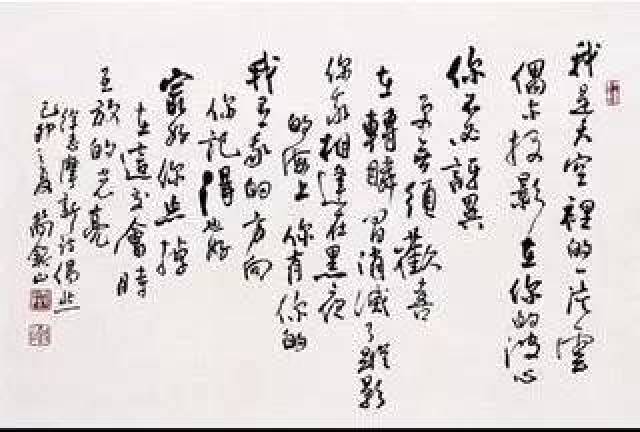 我是天空裡的一片雲
偶尔投影在你的波心
你不必訝異
更无須歡喜
在轉瞬間消滅了蹤影
你我相逢在黑夜
的海上你有你的
我有我的方向
你記得也好
最好你忘掉
在這交會時
互放的光亮
徐志摩新詩偶然
己卯之夏